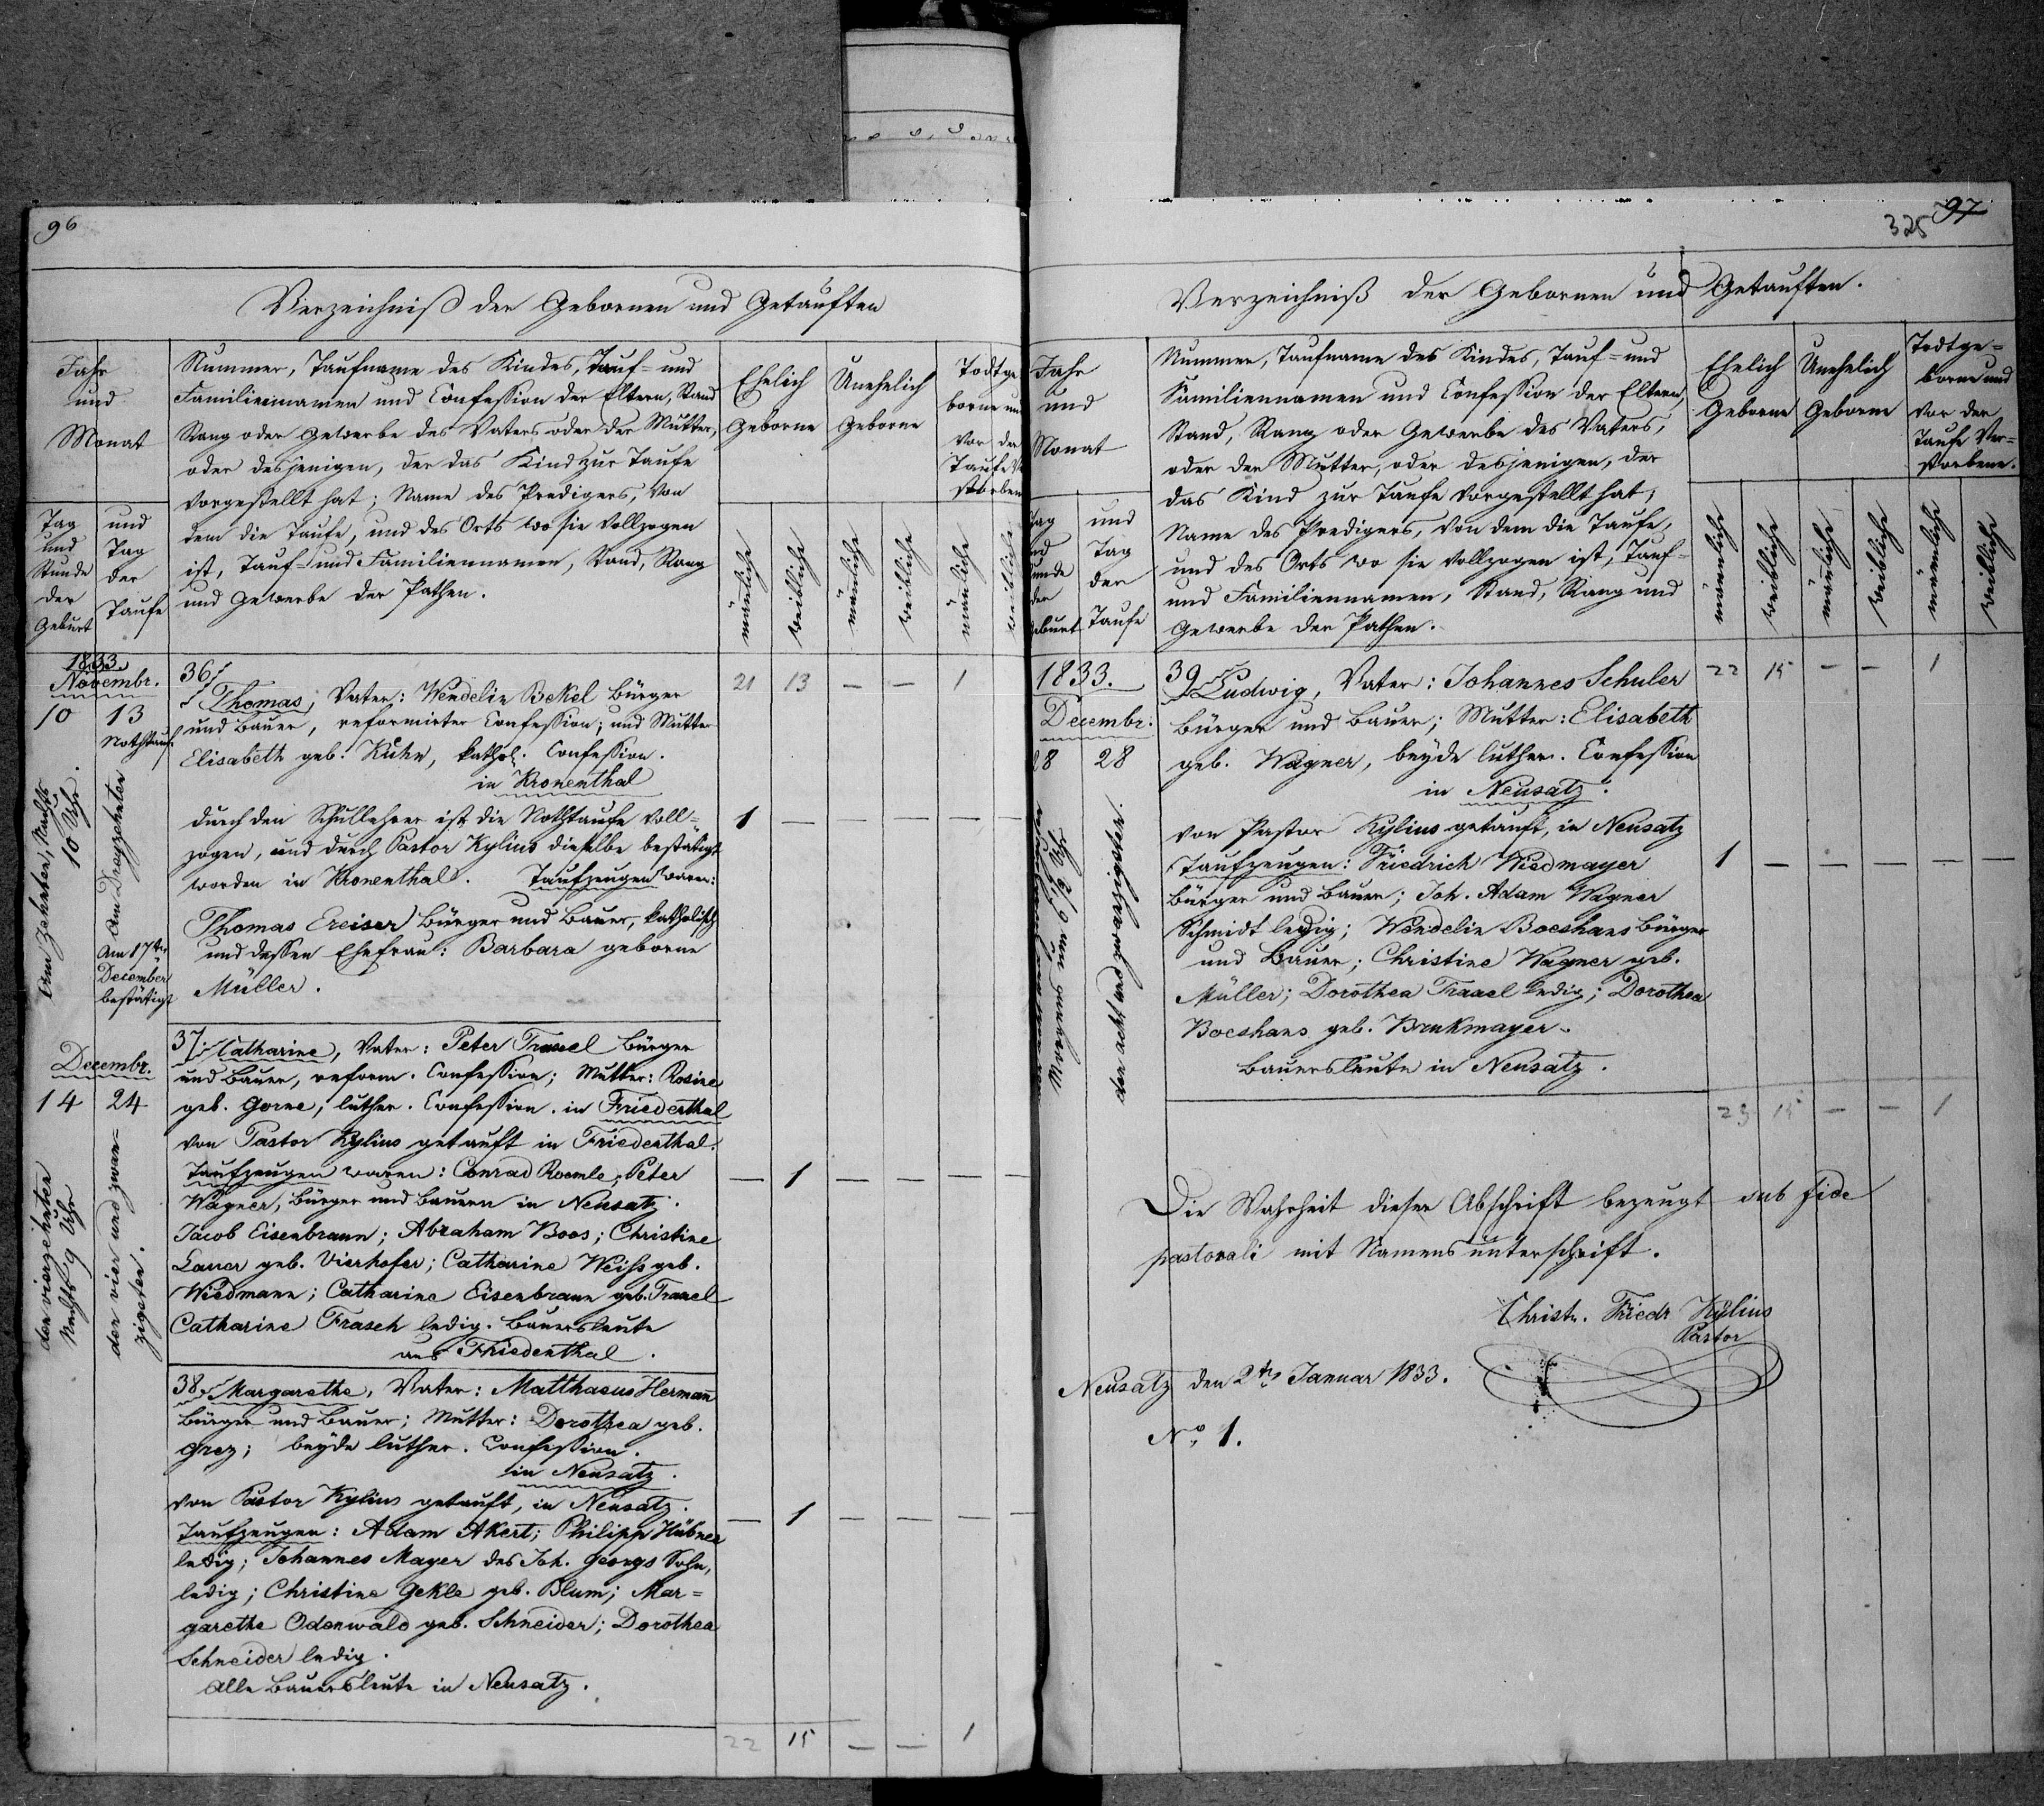 96
Verzeichniß der Gebornen und Getauften
Jahr
und
Monat
Tag
und
Stunde
der
Geburt
und
Tag
der
Taufe
Nummer, Taufname des Kindes, Tauf- und
Familiennamen und Confession der Eltern, Stand
Rang oder Gewerbe des Vaters oder der Mutter,
oder desjenigen, der das Kind zur Taufe
vorgestellt hat; Name des Predigers, von
dem die Taufe, und des Orts wo sie vollzogen
ist, Tauf- und Familiennamen, Stand, Rang
und Gewerbe der Pathen.
Ehelich
Geborne
Unehelich
Geborne
Todtge
borne und
vor der
Taufe Ve
storben
mänliche
weibliche
mänliche
weibliche
mänliche
weibliche
1833
Novembr.
10 13
Nothtauf.
Am Zehnten, Nachts
10 Uhr.
Am Dreyzehnten
Am 17ten
December
bestätigt
36.
Thomas; Vater: Wendelin Bekel Bürger
und Bauer, reformirter Confession; und Mutter
Elisabeth geb. Kuhn, kathol. Confession.
in Kronenthal
21 13 — — 1
durch den Schullehrer ist die Nothtaufe voll-
zogen, und durch Pastor Kylius dieselbe bestätigt
worden in Kronenthal. Taufzeugen waren:
Thomas Ereiser Bürger und Bauer, katholisch
und dessen Ehefrau: Barbara geborne
Müller.
1 — — — — —
Decembr.
14 24
den vierzehnten
Nachts 9 Uhr
den vier und zwan-
zigsten.
37. Catharine, Vater: Peter Trauel Bürger
und Bauer, reform. Confession; Mutter: Rosine
geb. Gorne, luther. Confession. in Friedenthal
von Pastor Kylius getauft in Friedenthal.
Taufzeugen waren: Conrad Roemle; Peter
Wagner, Bürger und Bauern in Neusatz.
Jacob Eisenbraun; Abraham Boos; Christine
Lauer geb. Vierhofer; Catharine Weiß geb.
Wiedmann; Catharine Eisenbraun geb. Trauel
Catharine Frasch ledig. Bauersleute
aus Friedenthal.
— 1 — — — —
38. Margarethe, Vater: Matthaeus Hermann
Bürger und Bauer; Mutter: Dorothea geb.
Grez; beyde luther. Confession.
in Neusatz.
von Pastor Kylius getauft, in Neusatz.
Taufzeugen: Adam Akert; Philipp Hübner
ledig; Johannes Mayer des Joh. Georgs Sohn,
ledig; Christine Gekle geb. Blum; Mar-
garethe Odenwald geb. Schneider; Dorothea
Schneider ledig.
Alle Bauersleute in Neusatz.
— 1 — — — —
22 15 — — 1
325 97
Verzeichniß der Gebornen und Getauften.
Jahr
und
Monat
Tag
und
unde
der
eburt
und
Tag
der
Taufe
Nummer, Taufname des Kindes, Tauf- und
Familiennamen und Confession der Eltern,
Stand, Rang oder Gewerbe des Vaters,
oder der Mutter, oder desjenigen, der
das Kind zur Taufe vorgestellt hat,
Name des Predigers, von dem die Taufe,
und des Orts wo sie vollzogen ist, Tauf-
und Familiennamen, Stand, Rang und
Gewerbe der Pathen.
Ehelich
Geborne
Unehelich
Geborne
Todtge-
borne und
vor der
Taufe Ver-
storbene.
mänliche
weibliche
mänliche
weibliche
mänliche
weibliche
1833.
Decembr.
28 28
Morgens um 9 Uhr
den acht und zwanzigsten.
39. Ludwig, Vater: Johannes Schuler
Bürger und Bauer; Mutter: Elisabeth
geb. Wagner, beyde luther. Confession
in Neusatz.
22 15 — — 1
von Pastor Kylius getauft, in Neusatz
Taufzeugen: Friedrich Wiedmayer
Bürger und Bauer; Joh. Adam Wagner
Schmidt ledig; Wendelin Boeshans Bürger
und Bauer; Christine Wagner geb.
Müller; Dorothea Trauel ledig; Dorothea
Boeshans geb. Brukmayer.
Bauersleute in Neusatz.
1 — — — — —
23 15 — — 1
Die Wahrheit dieser Abschrift bezeugt sub fide
pastorali mit Namensunterschrift.
Christn. Friedr Kylius
Pastor
Neusatz den 2ten Januar 1833.
No. 1.